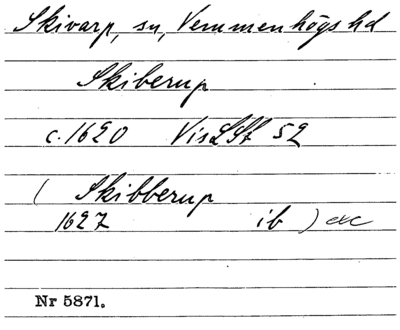 Skivarp, sn, Vemmenhögs hd
Skiberup
c. 1620 VisLSt 52
( Skibberup
1627 ib ) exc
Nr 5871.